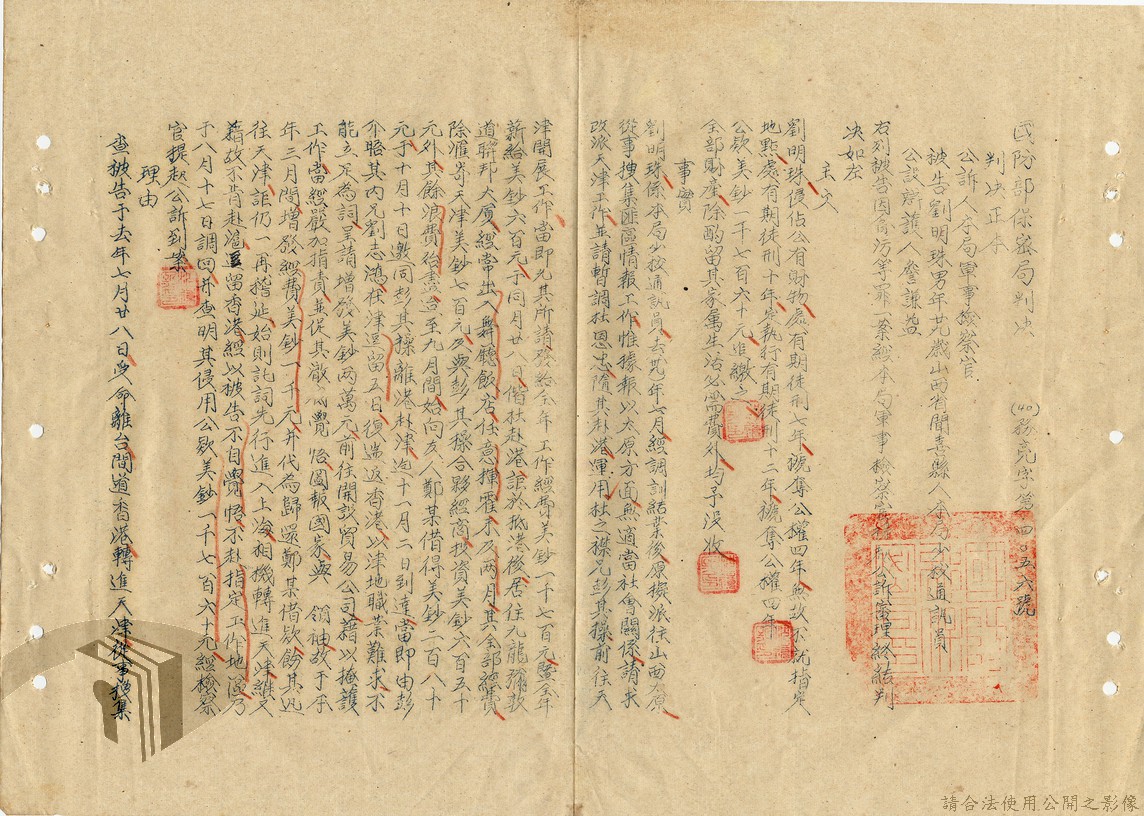 國防部保密局判決
(40)務亮字第四〇五六號
判決正本
公訴人本局軍事檢察官
被告劉明珠男年廿九歲山西省聞喜縣人本局少校通訊員
公設辯護人詹謙益
右列被告因貪污等罪一案經本局軍事檢察官提起公訴審理終結判
決如左
主文
劉明珠侵佔公有財物處有期徒刑七年褫奪公權四年無故不就指定
地點處有期徒刑十年定執行有期徒刑十二年褫奪公權四年
公款美鈔一千七百六十元追繳之
全部財產除酌留其家屬生活必需費外均予沒收
事實
劉明珠係本局少校通訊員去卅九年七月經調訓結業後原擬派往山西太原
從事搜集匪區情報工作惟據報以太原方面無適當社會關係請求
改派天津工作並請暫調杜恩忠隨其赴港運用杜之襟兄彭其操前往天
津開展工作當即允其所請發給全年工作經費美鈔一千七百元暨全年
薪給美鈔六百元于同月廿八日偕杜赴港詎於抵港後居住九龍彌敦
道聯邦大廈經常出入舞廳飯店任意揮霍未及两月其全部經費
除滙寄天津美鈔七百元及與彭其操合夥經商投資美鈔六百五十
元外其餘浪費殆盡迨至九月間始向友人鄭某借得美鈔二百八十
元于十月十日邀同彭其操離港赴津迄十一月二日到達當即由彭
介晤其內兄劉志鴻在津逗留五日復遄返香港以津地職業難求不
能立足為詞呈請增發美鈔两萬元前往開設貿易公司藉以掩護
工作當經嚴加指責並促其澈底覺悟圖報國家與 領袖故于本
年三月間增發經費美鈔一千元并代為歸還鄭某借款飭其迅
往天津詎仍一再稽延始則託詞先行進入上海相機轉進天津繼又
藉故不肯赴滬逗留香港經以被告不自覺悟不赴指定工作地區乃
于八月十七日調回并查明其侵用公款美鈔一千七百六十元經檢察
官提起公訴到案
理由
查被告于去年七月廿八日受命離台間道香港轉進天津從事搜集
請合法使用公開之影像